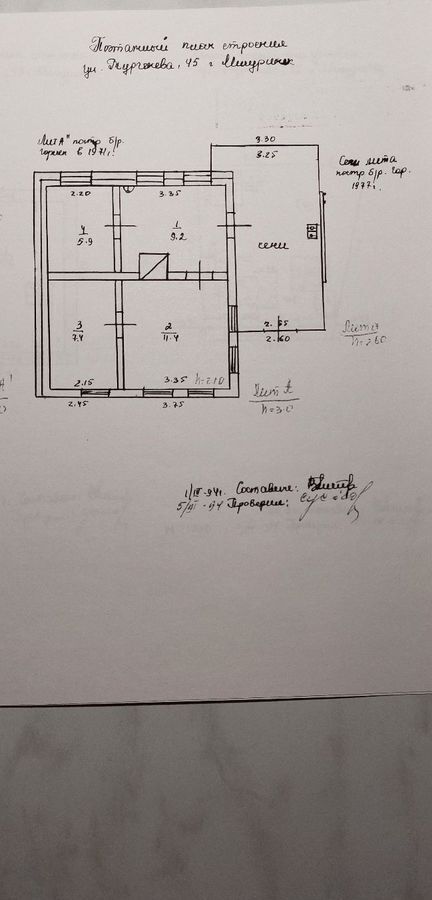 Поэтажный план строения
ул. Тургенева, 45 г Мичуринск
"Лит А" постр б/р.
горпек в 1971г.
3.30
3.25
Сени лита
постр б/р. гор.
1977г.
2.20
3.35
4
5.9
1
9.2
сени
3
7.4
2
11.4
2.60
Лит а
h=2.60
2.15
3.35 h=2.10
2.45
3.75
Лит А
h=3.0
Составил:
Проверил: